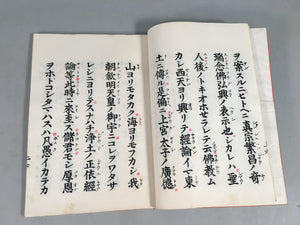 ヲ案スルニマコトニ真宗繁昌ノ奇
瑞念佛弘興ノ表示也シカレハ聖
人後ノトキオホセラレテ云佛教ム
カシ西天ヨリ興リテ經論イマ東
土ニ傳ル是偏ニ上宮太子ノ廣德
山ヨリモタカク海ヨリモフカシ我
朝欽明天皇ノ御宇ニコレヲワタサ
レシニヨリテスナハチ浄土ノ正依經
論等此時ニ來至ス儲君モシ厚恩
ヲホトコシタマハスハ凡愚イカテカ